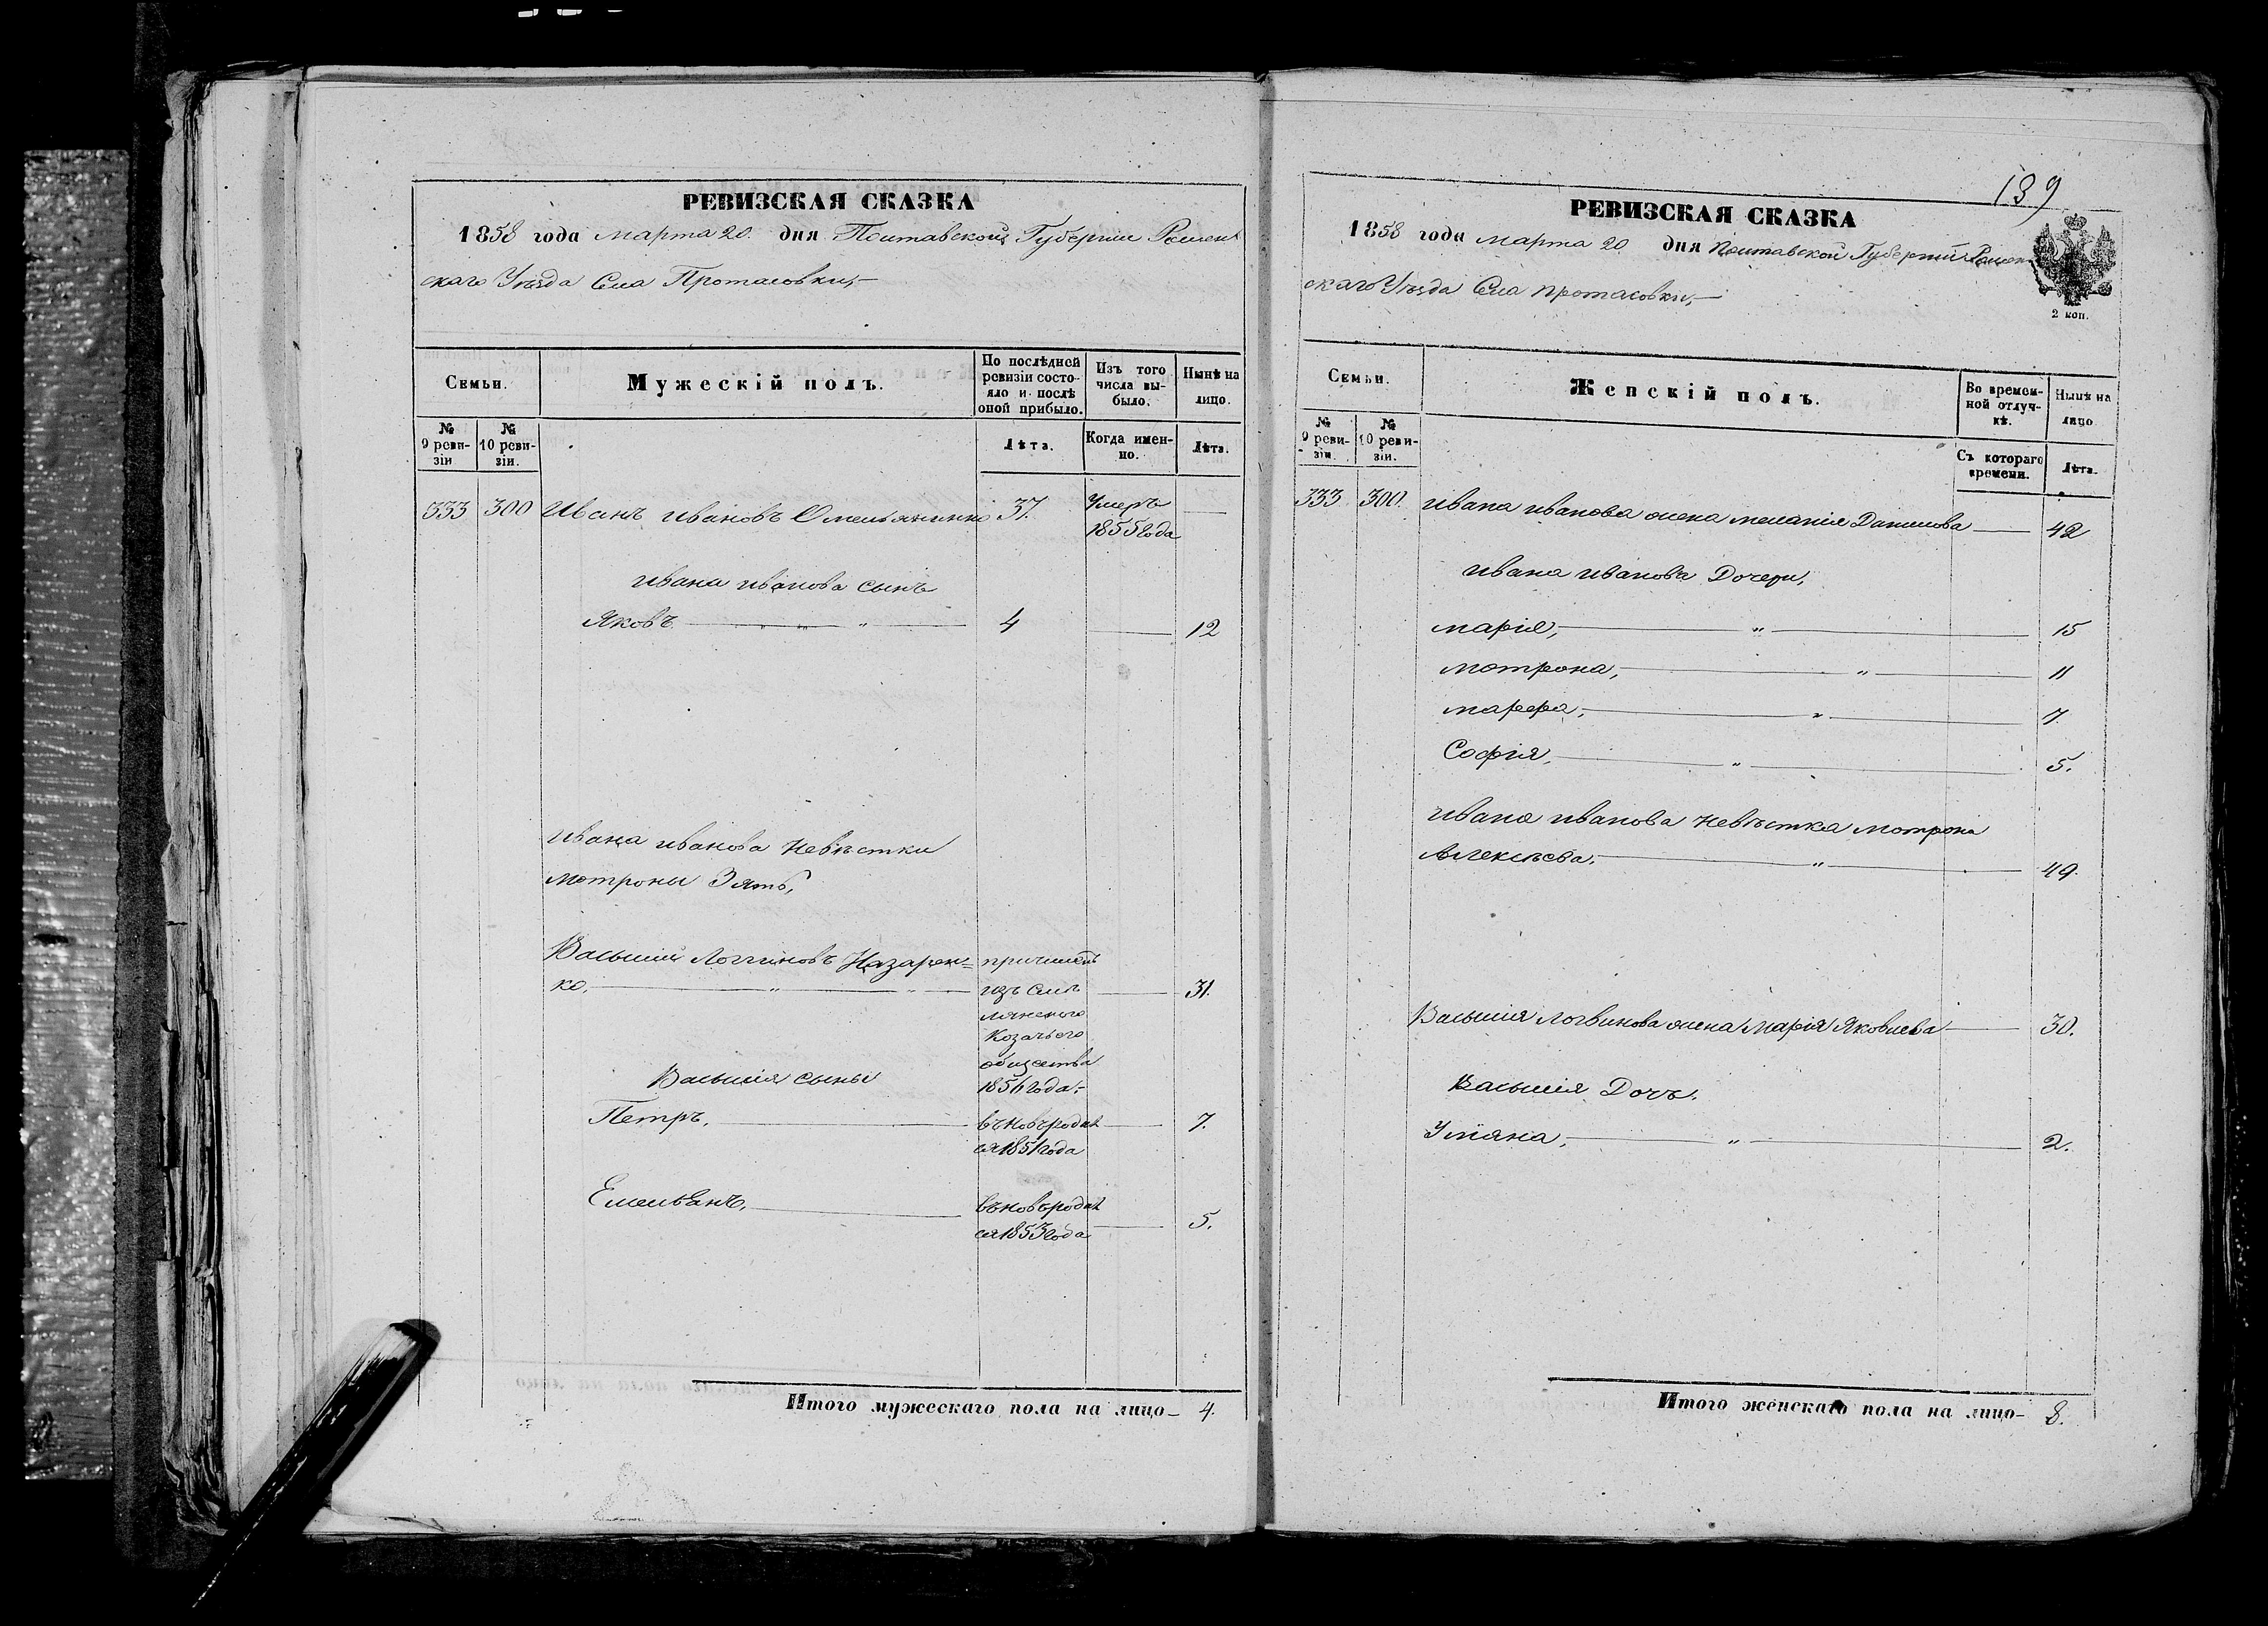 РЕВИЗСКАЯ СКАЗКА
1858 года марта 20. дня Полтавской Губернии Роменскаго Уѣзда Села Протасовки,—
Семьи.
Мужескій полъ.
По послѣдней ревизіи состояло и послѣ оной прибыло.
Изъ того числа выбыло.
Нынѣ на лицо.
№ 9 ревизіи
№ 10 ревизіи.
Лѣта.
Когда именно.
Лѣта.
333 300 Иванъ Ивановъ Омельяненко 37. Умеръ 1855 года —
Ивана Иванова сынъ
Яковъ — 4 — 12
Ивана Иванова Невѣстки
Мотроны Зять,
Василій Логгиновъ Назаренко, — причисленъ изъ — 31.
козачьего
общества
1856 года.
Василія сыны
Петръ, — вновь родился 1851 года — 7.
Емельянъ, — вновь родился 1853 года — 5.
Итого мужескаго пола на лицо— 4.
139
РЕВИЗСКАЯ СКАЗКА
1858 года марта 20. дня Полтавской Губерніи Роменскаго Уѣзда Села Протасовки,—
2 коп.
Семьи.
Женскій полъ.
Во временной отлучкѣ.
Нынѣ на лицо
№ 9 ревизіи
№ 10 ревизіи.
Съ котораго времени.
Лѣта.
333 300. Ивана Иванова жена Меланія Данилова — 42
Ивана Иванова Дочери,
Марія, — 15
Мотрона, — 11
Марфа, — 7.
Софія, — 5.
Ивана Иванова Невѣстка Мотрона
Алексѣева, — 49.
Василія Логвинова жена Марія Яковлева — 30.
Василія Дочь.
Уліяна, — 2.
Итого женскаго пола на лицо— 8.